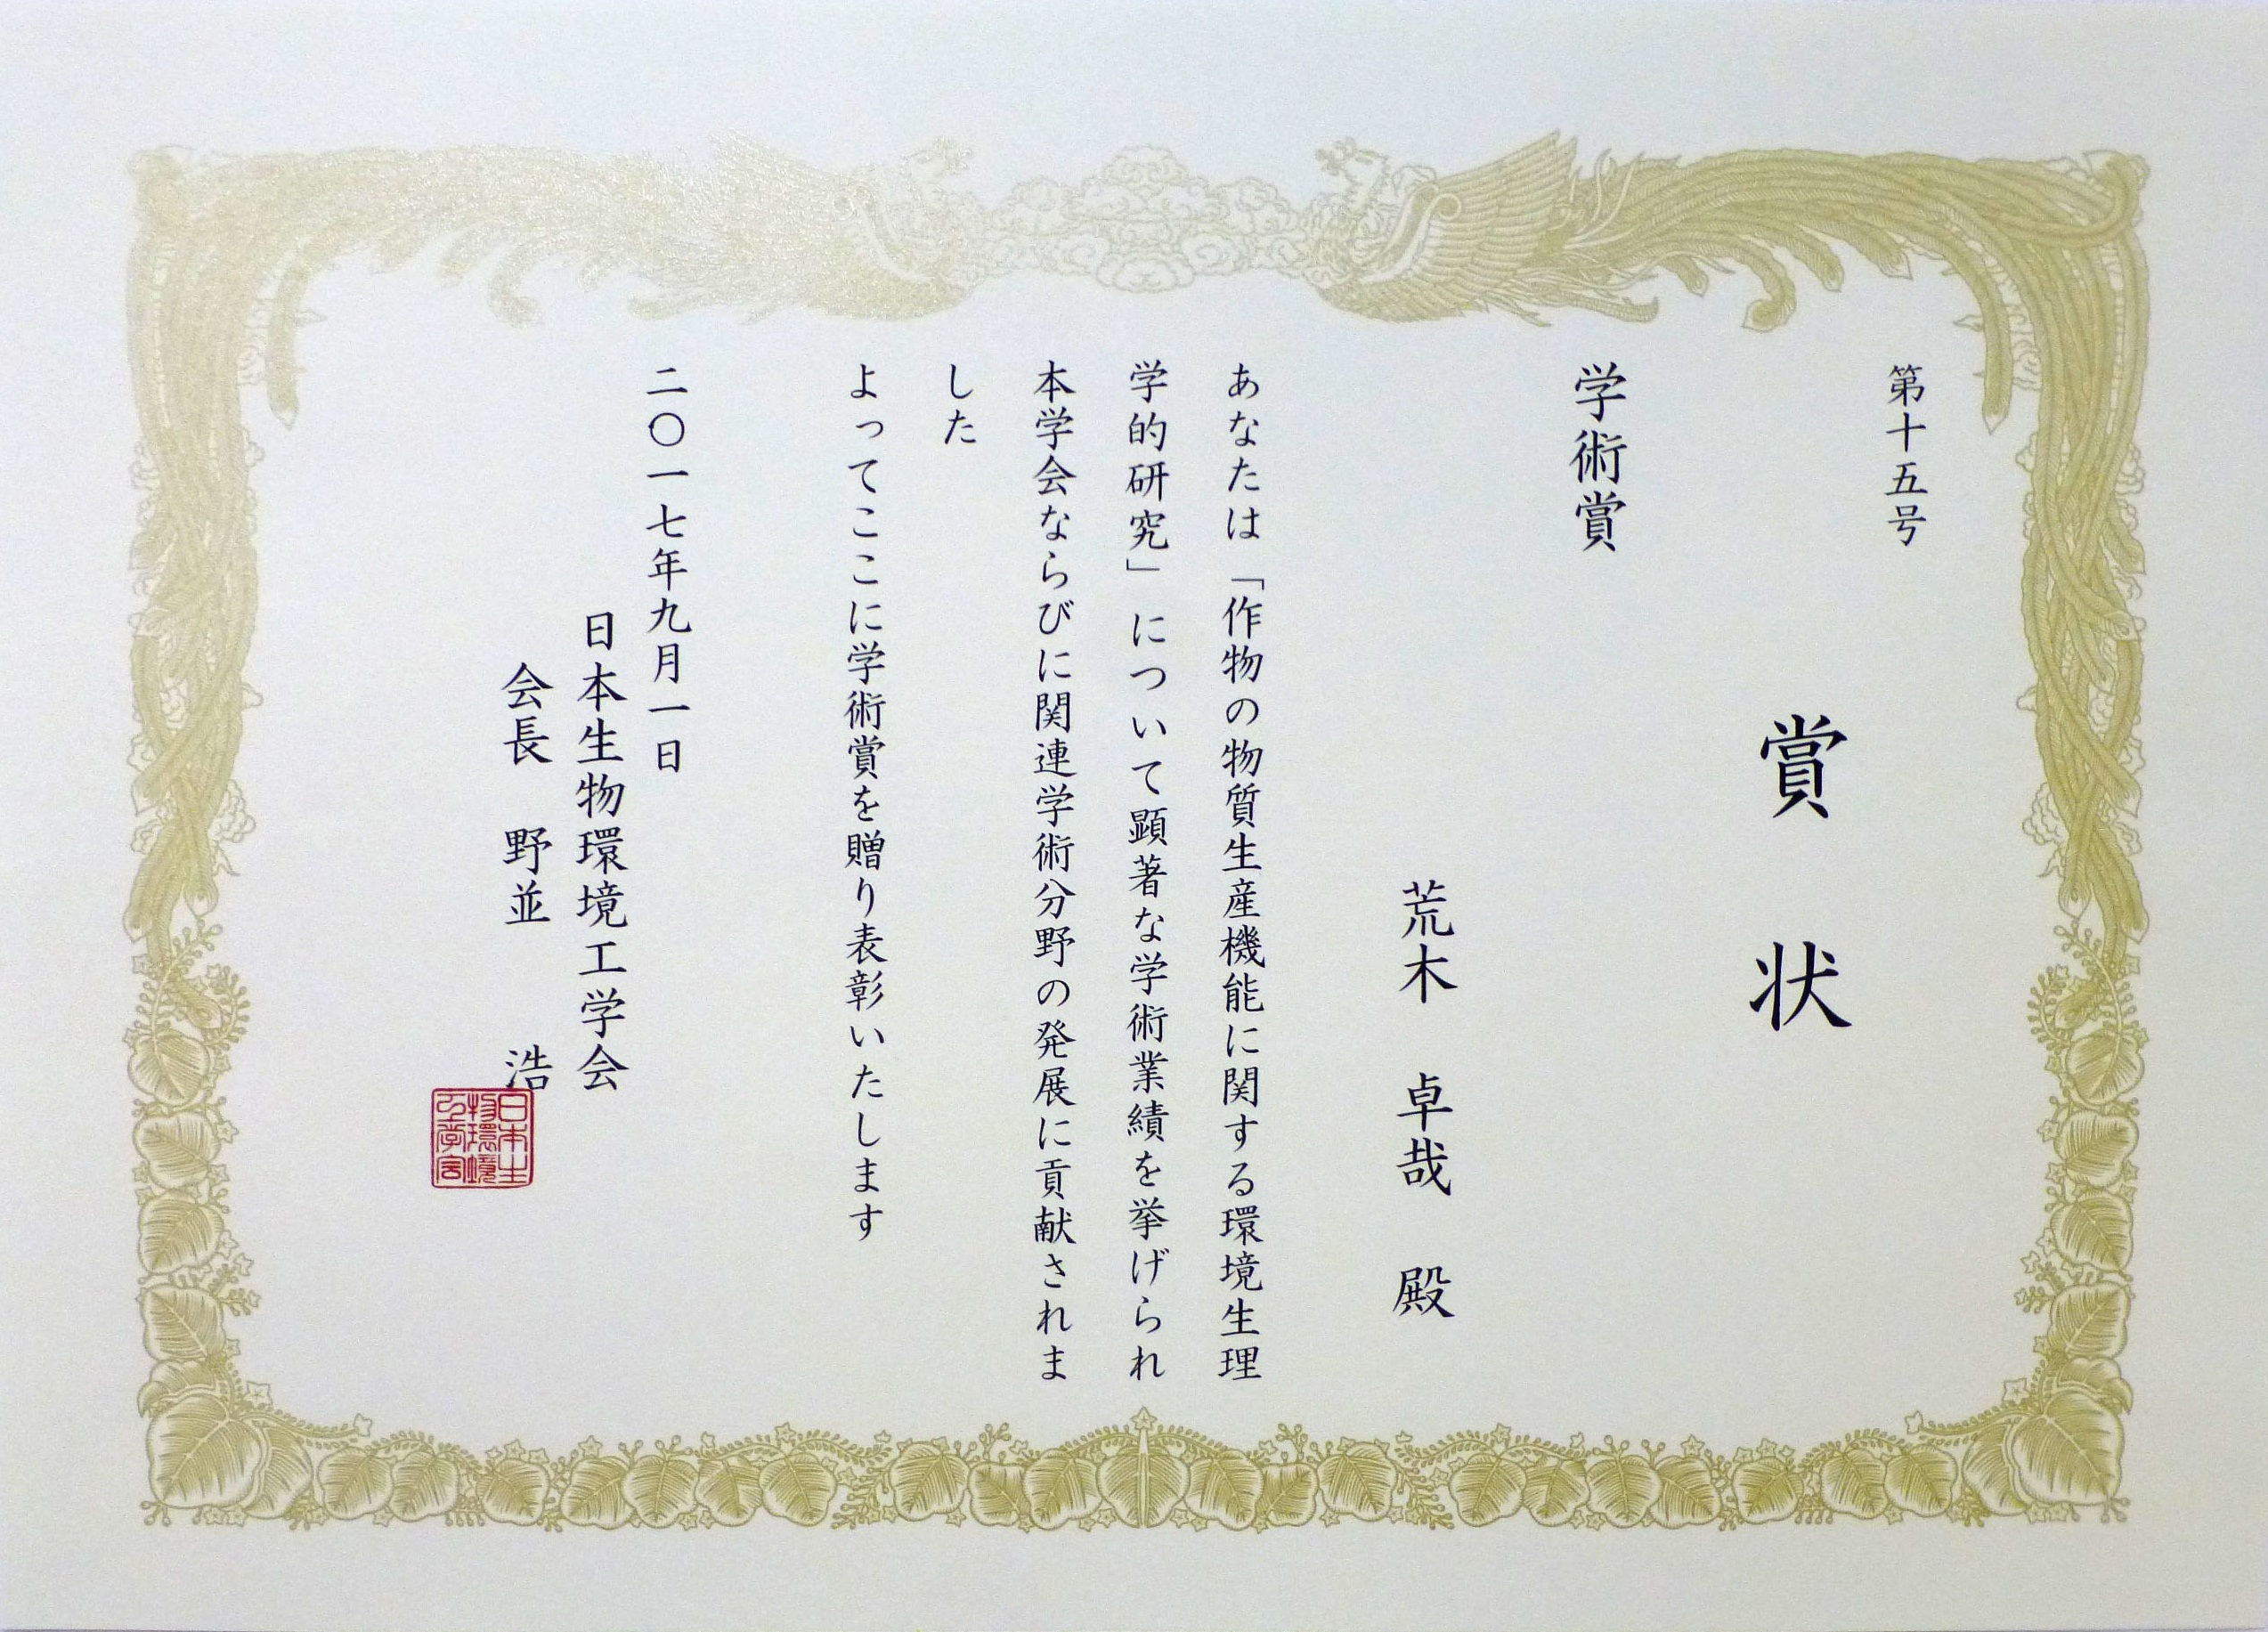 第十五号
賞状
学術賞
荒木 卓哉 殿
あなたは「作物の物質生産機能に関する環境生理
学的研究」について顕著な学術業績を挙げられ
本学会ならびに関連学術分野の発展に貢献されま
した
よってここに学術賞を贈り表彰いたします
二〇一七年九月一日
日本生物環境工学会
会長 野並 浩
日本生
物環境
工学会